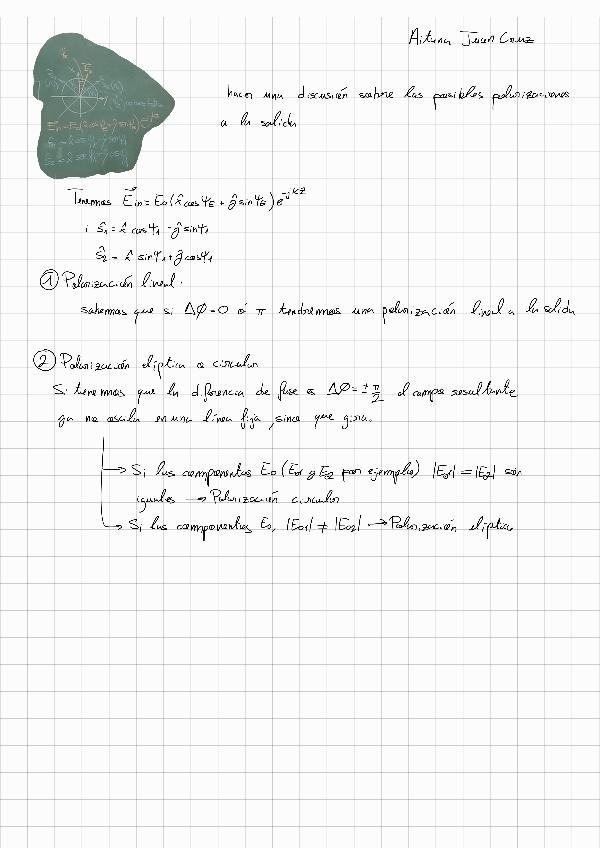 Aitana Juan Cruz
hacer una discusión sobre las posibles polarizaciones
a la salida
E_in = E_0(x̂ cos Ψ_E + ŷ sin Ψ_E) e^-jkz
Tenemos E⃗_in = E_0 (x̂ cos Ψ_E + ŷ sin Ψ_E) e^-jkz
i ŝ_1 = x̂ cos Ψ_1 - ŷ sin Ψ_1
ŝ_2 = x̂ sin Ψ_1 + ŷ cos Ψ_1
① Polarización lineal.
sabemos que si ΔΦ = 0 ó π tendremos una polarización lineal a la salida
② Polarización elíptica o circular
Si tenemos que la diferencia de fase es ΔΦ = ± π/2 el campo resultante
ya no oscila en una línea fija, sino que gira.
→ Si las componentes E_0 (E_01 y E_02 por ejemplo) |E_01| = |E_02| son
iguales → Polarización circular
→ Si las componentes E_0, |E_01| ≠ |E_02| → Polarización elíptica